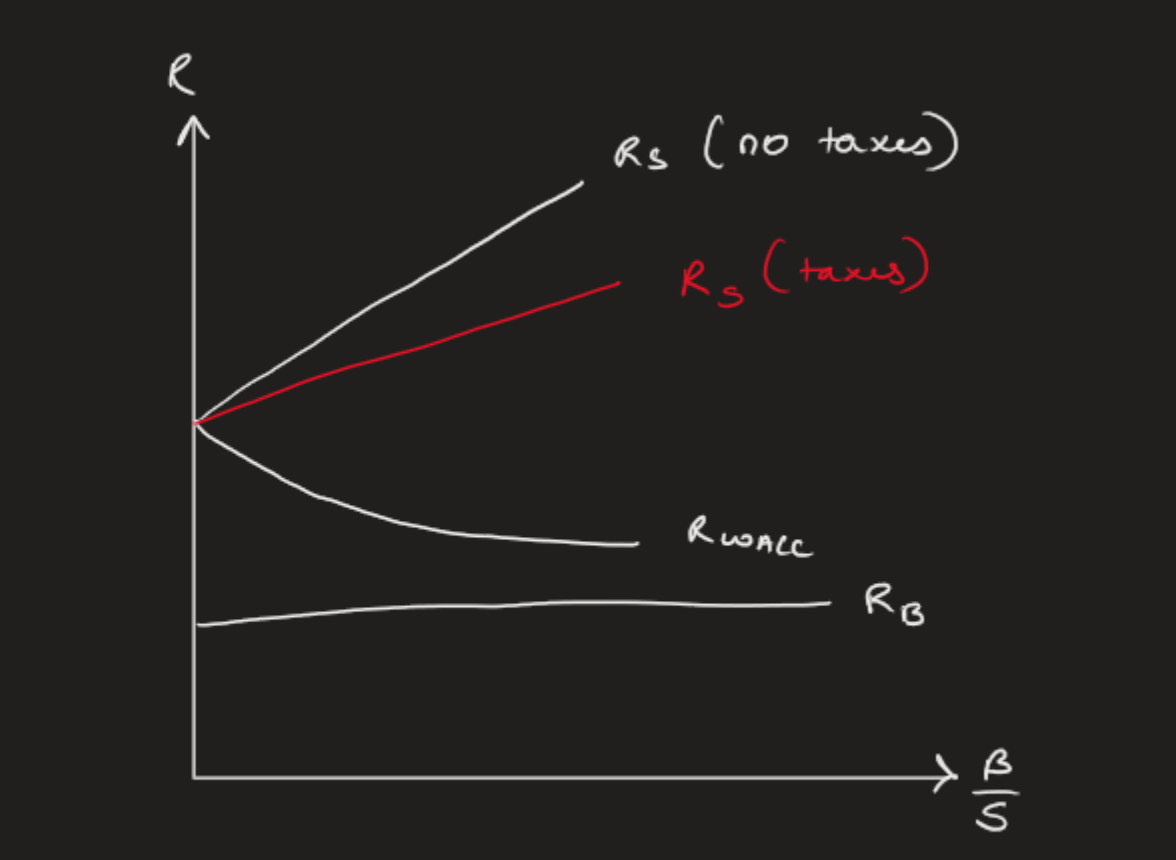 R
Rs (no taxes)
Rs (taxes)
RWACC
RB
B
S